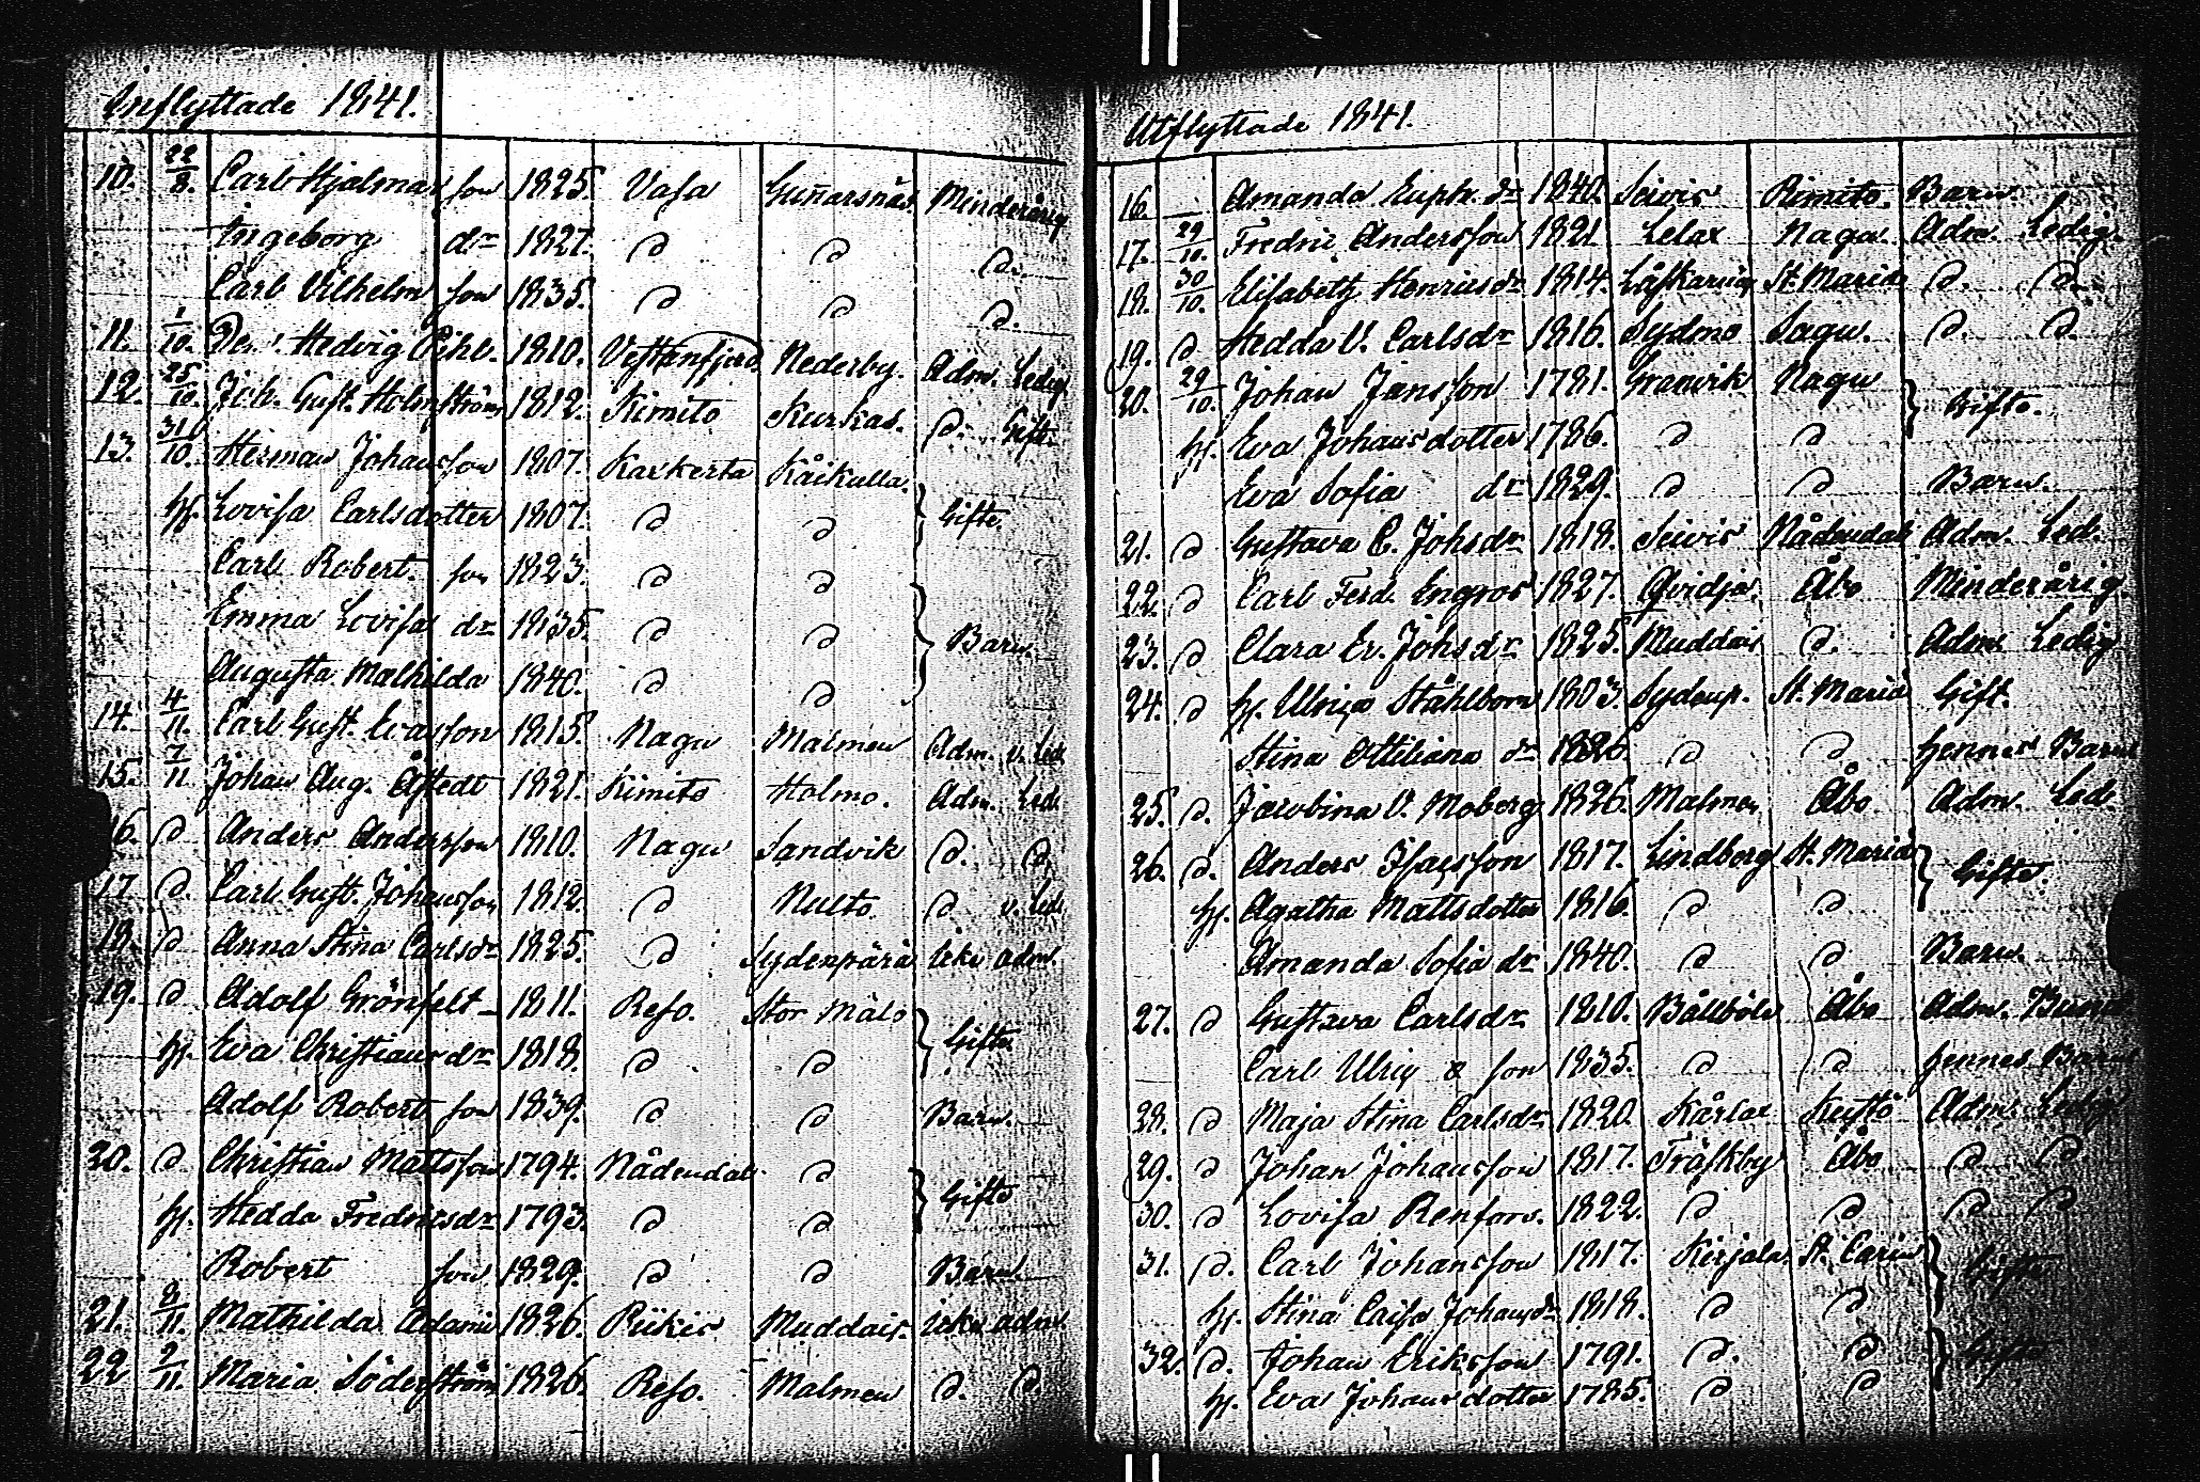 Inflyttade 1841.
10. 22/8. Carl Hjalmar son 1825. Vasa Gunnarsnäs. Minderårig
Ingeborg dr 1827. d d d.
Carl Vilhelm son 1835. d d d.
11. 1/10. Hedvig 1810. Vestanfjerd Nederby. Adm. Ledig
12. 25/10. Joh. Gust. Holmström 1812. Kimito Kurkas. d. Gift.
13. 31/10. Herman Johansson 1807. Kaxkerta Kåikulla.
hf. Lovisa Carlsdotter 1807. d d Gifte.
Carl Robert. son 1823. d d
Emma Lovisa dr 1835. d d Barn.
Augusta Mathilda 1840. d d
14. 4/11. Carl Gust. Evasson 1815. Nagu Malmen Adm. o. Led
15. 7/11 Johan Aug. Åstedt 1821. Kimito Holmo. Adm. Led.
16. d Anders Andersson 1810. Nagu Sandvik d. d.
17 d. Carl Gust. Johansson 1812. d d o. Led
18. d Anna Stina Carlsdr 1825. d Sydenpärä icke adm.
19. d Adolf Grönfelt 1811. Reso. Stor Målo
hf. Eva Christiansdr 1818. d d Gifte.
Adolf Robert son 1839. d d Barn.
20. d. Christian Mattsson 1794. Nådendal d
hf. Hedda Fredricsdr 1793. d d Gifte
Robert son 1829. d d Barn.
21. 8/11. Mathilda 1826. Rükis Muddais. icke adm
22 9/11. Maria Söderström 1826. Reso. Malmen d. d.
Utflyttade 1841.
16. Amanda Euphr. dr 1840. Seivis Rimito. Barn.
17. 29/10. Fredric Andersson 1821 Lelax Nagu. Adm. Ledig.
18. 30/10. Elisabeth Henricsdr 1814. St. Mariæ d. d.
19. d Hedda U. Carlsdr 1816. Sydmo Sagu. d. d.
20. 29/10. Johan Jansson 1781. Granvik Nagu
hf. Eva Johansdotter 1786. d d Gifte.
Eva Sofia dr 1829. d d Barn.
21. d Gustava C. Johsdr 1818. Seivis Nådendal Adm. Led.
22. d Carl Ferd. Engros 1827. Qvidja. Åbo Minderårig.
23. d Clara Er. Johsdr 1825. Muddais d. Adm. Ledig
24. d hf. Ulrica Ståhlborn 1803. St. Mariæ Gift.
Stina Ottiliana dr 1826. d d hennes Barn
25. d. Jacobina U. Moberg 1826. Malmen Åbo Adm. Led.
26. d. Anders Isacsson 1817. Lindberg St. Mariæ
hf. Agatha Mattsdotter 1816. d d Gifte.
Amanda Sofia dr 1840. d d Barn.
27. d Gustava Carlsdr 1810. Bållböle Åbo Adm.
Carl Ulric son 1835. d d hennes Barn
28. d Maja Stina Carlsdr 1820. Kårlax Adm. Ledig
29. d Johan Johansson 1817. Träskby Åbo d d
30. d Lovisa Renfors. 1822. d d d d
31. d. Carl Johansson 1817. Kirjala. St. Carin
hf. Stina Caisa Johansdr 1818. d d Gifte
32. d. Johan Eriksson 1791. d. d
hf. Eva Johansdotter 1785. d d Gifte